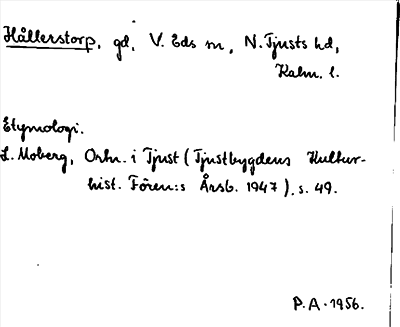 Hållerstorp, gd, V. Eds sn, N. Tjusts hd,
Kalm. l.
Etymologi.
L. Moberg, Ortn. i Tjust (Tjustbygdens Kultur-
hist. Fören:s Årsb. 1947), s. 49.
P.A. 1956.